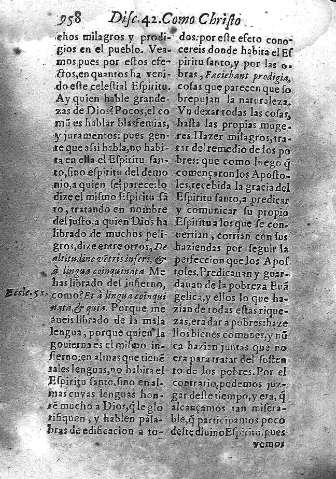 958 Disc. 42. Como Christo
chos milagros y prodi-
gios en el pueblo. Vea-
mos pues por estos efec-
tos, en quantos ha veni-
do este celestial Espiritu.
Ay quien hable grande-
zas de Dios? Pocos, el co-
mũ es hablar blasfemias,
y juramentos: pues gen-
te que assi habla, no habi-
ta en ella el Espiritu san-
to, sino espiritu del demo-
nio, a quien se parece: lo
dize el mismo Espiritu sã
to, tratando en nombre
del justo, a quien Dios ha
librado de muchos peli-
gros, dize entre otros, De
altitudine ventris inferi, &
à lingua coinquinata. Me
has librado del infierno,
como? Et à lingua coinqui
nata, &
Porque me
aueis librado de la mala
lengua; porque quien la
gouierna es el mismo in-
fierno, en almas que tienẽ
tales lenguas, no habita el
Espiritu santo, sino en al-
mas cuyas lenguas hon-
rẽ mucho a Dios, q̃ le glo
rifiquen, y hablen pala-
bras de edificacion a to-
Eccle. 51.
dos: por este efeto cono-
cereis donde habita el Es
piritu santo, y por las o-
bras, Faciebant prodigia,
cosas que parecen que so-
brepujan la naturaleza.
Vn dexar todas las cosas,
hasta las propias muge-
res. Hazer milagros, tra-
tar del remedio de los po
bres: que como luego q̃
començaron los Aposto-
les, recebida la gracia del
Espiritu santo, a predicar
y comunicar su propio
Espiritu a los que se con-
uertian, corrian con sus
haziendas por seguir la
perfeccion que los Apos-
toles. Predicauan y guar-
dauan de la pobreza Euã
gelica, y ellos lo que ha-
zian de todas estas rique-
zas, era dar a pobres: haze
llos bienes comunes, y nũ
ca hazian juntas que no
era para tratar del susten
to de los pobres. Por el
contrario, podemos juz-
gar deste tiempo, y era, q̃
alcançamos tan misera-
ble, q̃ participamos poco
deste diuino Espiritu, pues
vemos